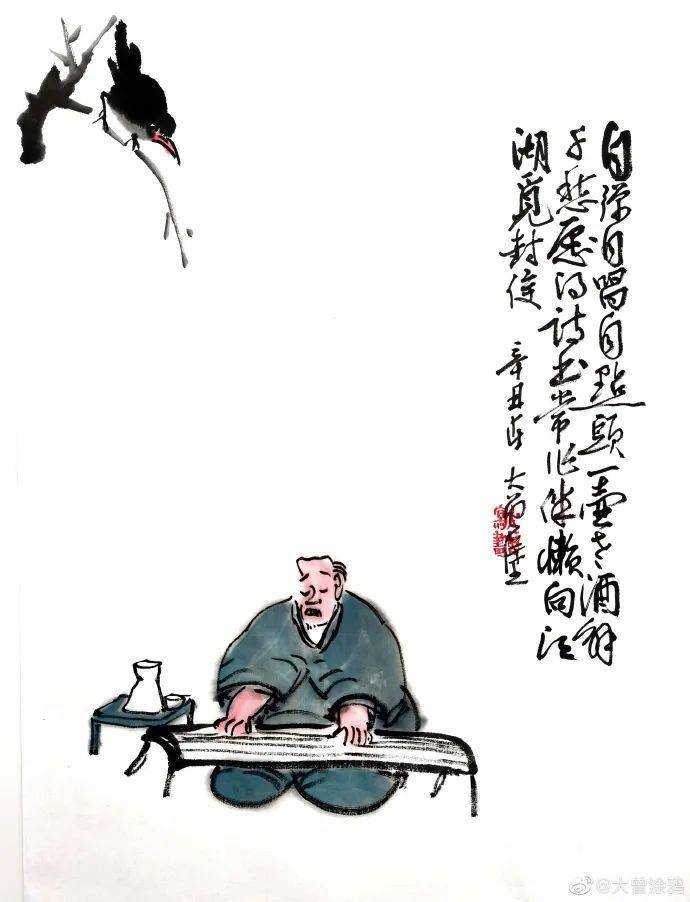 自弹自唱自點頭一壶老酒解
千愁愿得诗书常作伴懒向江
湖觅封侯 辛丑年 大曾
@大曾涂鸦